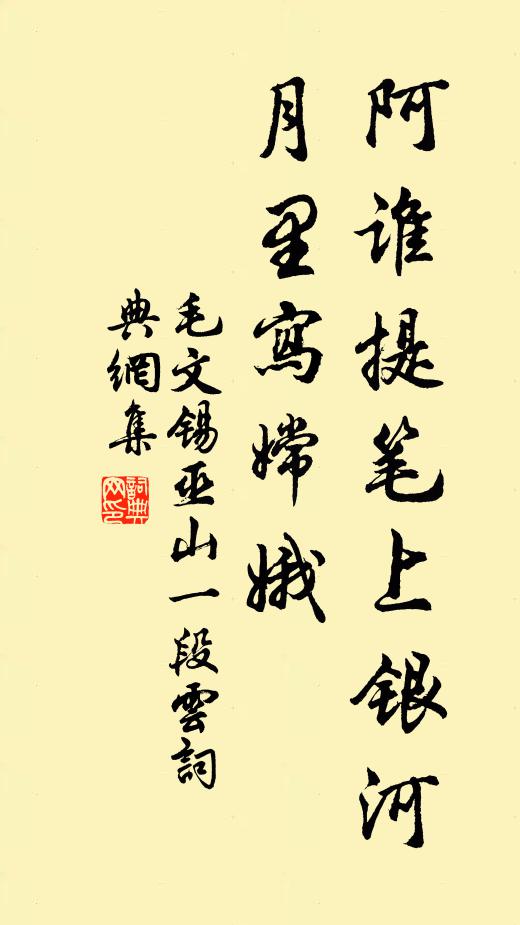 阿谁提笔上银河
月里寫嫦娥
毛文锡巫山一段雲詞
典網集
詞典网印